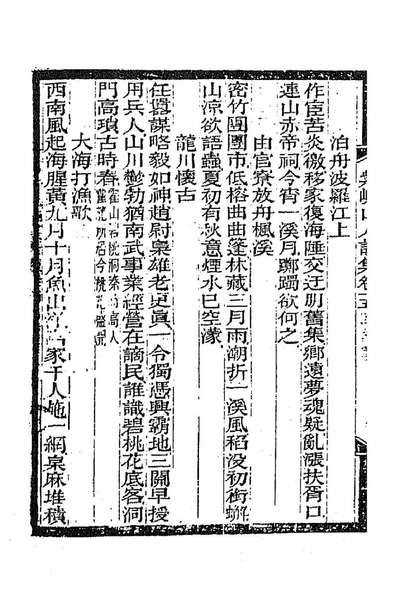 泊舟波羅江上
作宦苦炎徼移家復海陲交迂朋舊集鄉遠夢魂疑亂漲扶胥口
連山赤帝祠今宵一溪月躑躅欲何之
由官寮放舟楓溪
密竹團團市低格曲曲篷林藏三月雨潮折一溪風稻没初衔蠏
山涼欲語蟲夏初有秋意煙水已空濛
龍川懷古
任囂謀略毅如神趙尉梟雄老更真一令獨憑興霸地三關早授
用兵人山川鬱勃猶南武事業經營在謫民誰識碧桃花底客洞
門高瑣古時春
大海打漁歌
西南風起海腥黃九月十月魚出 家千人施一網泉麻堆積